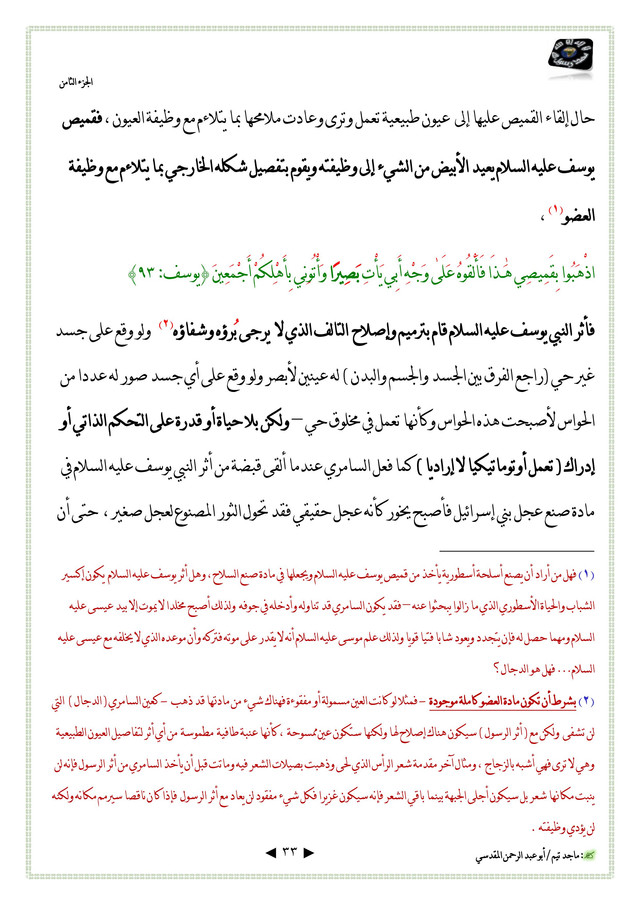 الجزء الثامن
حال إلقاء القميص عليها إلى عيون طبيعية تعمل وترى وعادت ملامحها بما يتلاءم مع وظيفة العيون ، فقميص
يوسف عليه السلام يعيد الأبيض من الشيء إلى وظيفته ويقوم بتفصيل شكله الخارجي بما يتلاءم مع وظيفة
العضو(١) ،
اذْهَبُوا بِقَمِيصِي هَٰذَا فَأَلْقُوهُ عَلَىٰ وَجْهِ أَبِي يَأْتِ بَصِيرًا وَأْتُونِي بِأَهْلِكُمْ أَجْمَعِينَ ﴿يوسف: ٩٣﴾
فأثر النبي يوسف عليه السلام قام بترميم وإصلاح التالف الذي لا يرجى بُرؤه وشفاؤه(٢) ولو وقع على جسد
غير حي (راجع الفرق بين الجسد والجسم والبدن ) له عينين لأبصر ولو وقع على أي جسد صور له عددا من
الحواس لأصبحت هذه الحواس وكأنها تعمل في مخلوق حي – ولكن بلا حياة أو قدرة على التحكم الذاتي أو
إدراك ( تعمل أوتوماتيكيا لا إراديا ) كما فعل السامري عندما ألقى قبضة من أثر النبي يوسف عليه السلام في
مادة صنع عجل بني إسرائيل فأصبح يخور كأنه عجل حقيقي فقد تحول الثور المصنوع لعجل صغير ، حتى أن
(١) فهل من أراد أن يصنع أسلحة أسطورية يأخذ من قميص يوسف عليه السلام ويجعلها في مادة صنع السلاح ، وهل أثر يوسف عليه السلام يكون إكسير
الشباب والحياة الأسطوري الذي ما زالوا يبحثوا عنه – فقد يكون السامري قد تناوله وأدخله في جوفه ولذلك أصبح مخلدا لا يموت إلا بيد عيسى عليه
السلام ومهما حصل له فإن يتجدد ويعود شابا فتيا قويا ولذلك علم موسى عليه السلام أنه لا يقدر على موته فتركه وأن موعده الذي لا يخلفه مع عيسى عليه
السلام... فهل هو الدجال ؟
(٢) بشرط أن تكون مادة العضو كاملة موجودة – فمثلا لو كانت العين مسمولة أو مفقوءة فهناك شيء من مادتها قد ذهب – كعين السامري ( الدجال ) التي
لن تشفى ولكن مع ( أثر الرسول ) سيكون هناك إصلاح لها ولكنها ستكون عين ممسوحة ، كأنها عنبة طافية مطموسة من أي أثر لتفاصيل العيون الطبيعية
وهي لا ترى فهي أشبه بالزجاج ، ومثال آخر مقدمة شعر الرأس الذي لحى وذهبت بصيلات الشعر فيه وماتت قبل أن يأخذ السامري من أثر الرسول فإنه لن
ينبت مكانها شعر بل سيكون أجلى الجبهة بينما باقي الشعر فإنه سيكون غزيرا فكل شيء مفقود لن يعاد مع أثر الرسول فإذا كان ناقصا سيرمم مكانه ولكنه
لن يؤدي وظيفته .
◄ ٣٣ ►
: ماجد تيم / أبو عبد الرحمن المقدسي